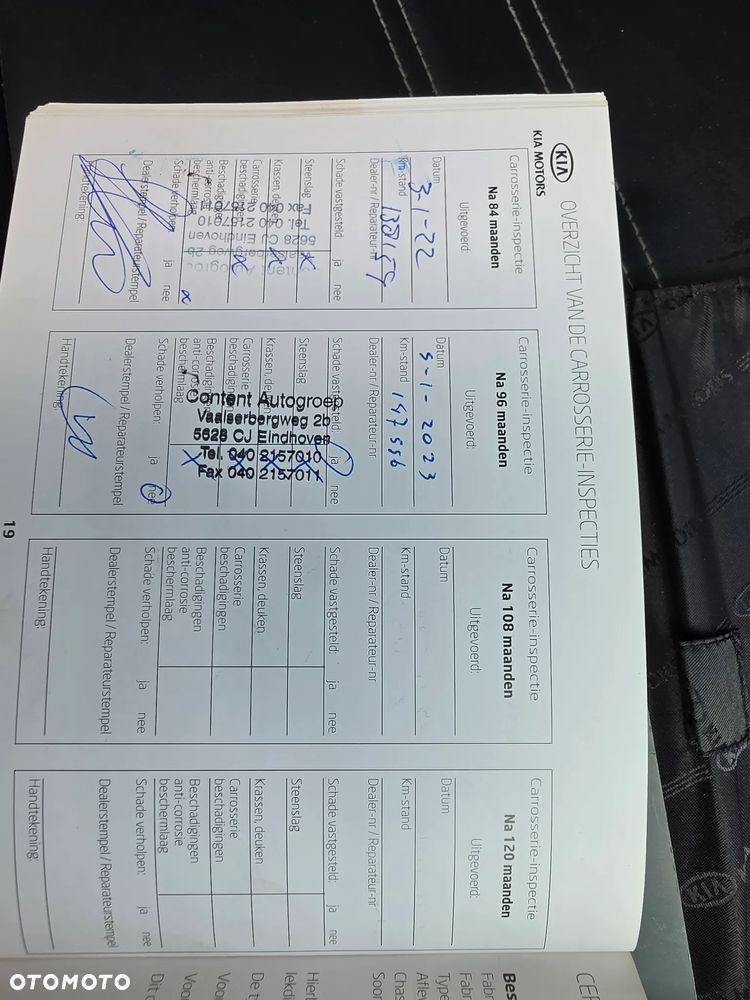 KIA
KIA MOTORS
OVERZICHT VAN DE CARROSSERIE-INSPECTIES
Carrosserie-inspectie
Na 84 maanden
Uitgevoerd:
Datum 3-1-22
Km-stand
Dealer-nr / Reparateur-nr
Schade vastgesteld: ja nee
Steenslag
Krassen, deuken
Carrosserie
beschadigingen
Beschadigingen
anti-corrosie
beschermlaag
Schade verholpen: ja nee
Dealerstempel / Reparateurstempel
Handtekening:
5628 CJ Eindhoven
Tel. 040 2157010
Fax 040 2157011
Carrosserie-inspectie
Na 96 maanden
Uitgevoerd:
Datum 5-1-2023
Km-stand 147556
Dealer-nr / Reparateur-nr
Schade vastgesteld: ja nee
Steenslag
Krassen, deuken
Carrosserie
beschadigingen
Beschadigingen
anti-corrosie
beschermlaag
Content Autogroep
Vaalserbergweg 2b
5628 CJ Eindhoven
Tel. 040 2157010
Fax 040 2157011
Schade verholpen: ja nee
Dealerstempel / Reparateurstempel
Handtekening:
Carrosserie-inspectie
Na 108 maanden
Uitgevoerd:
Datum
Km-stand
Dealer-nr / Reparateur-nr
Schade vastgesteld: ja nee
Steenslag
Krassen, deuken
Carrosserie
beschadigingen
Beschadigingen
anti-corrosie
beschermlaag
Schade verholpen: ja nee
Dealerstempel / Reparateurstempel
Handtekening:
Carrosserie-inspectie
Na 120 maanden
Uitgevoerd:
Datum
Km-stand
Dealer-nr / Reparateur-nr
Schade vastgesteld: ja nee
Steenslag
Krassen, deuken
Carrosserie
beschadigingen
Beschadigingen
anti-corrosie
beschermlaag
Schade verholpen: ja nee
Dealerstempel / Reparateurstempel
Handtekening:
19
KIA
OTOMOTO